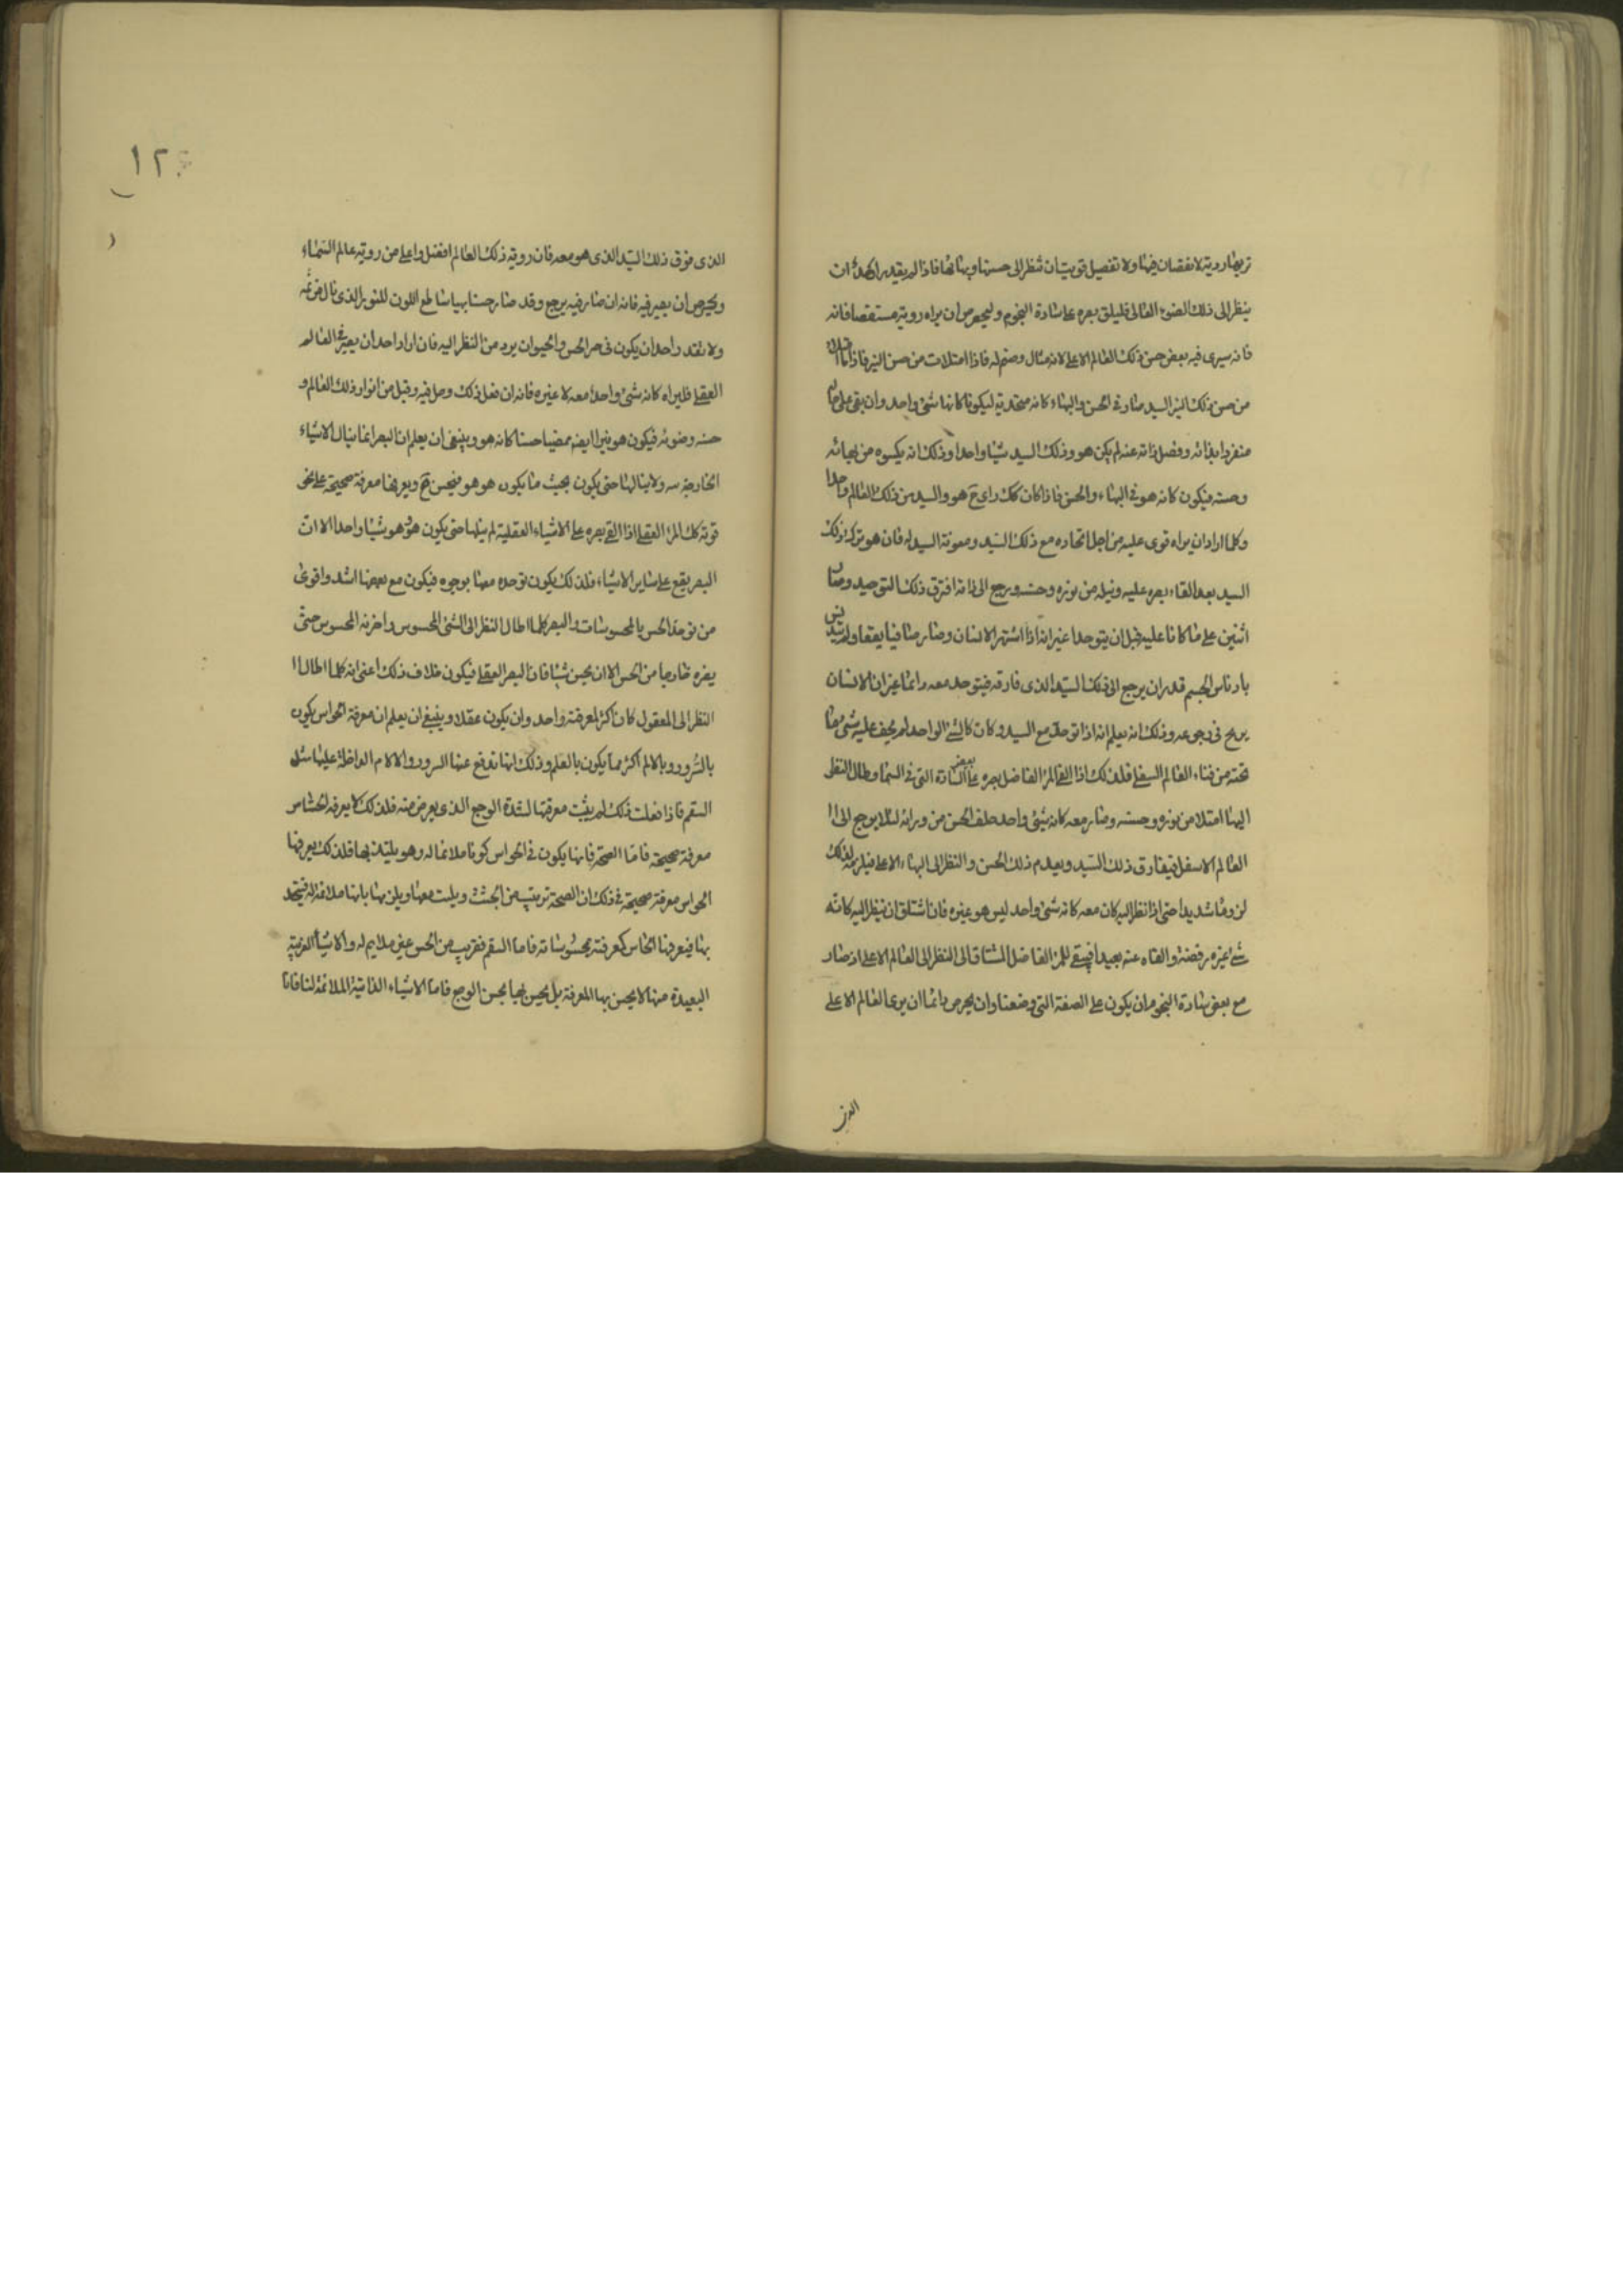 تريها روية لا نقصان فيها ولا تفصيل قويت ان تنظر الى حسنها وبهائها فاذا لم يقدر احد ان
ينظر الى ذلك الضوء العالى فليلق بصره على سادة النجوم وليحرص ان يراه روية مستقصا فانه
فانه سيرى فيه بعض حسن ذلك العالم الاعلى لانه مثال وصنم له فاذا امتلات من حسن النير فاذا
من حسن ذلك النير السيد صار فى الحسن والبهاء كانه متحد به ليكونا كانهما شئ واحد وان بقى على حاله
منفردا بذاته وفصل ذاته عنه لم يكن هو وذلك السيد شيئا واحدا وذلك انه يكسوه من بهائه
وحسنه فيكون كانه هو فى البهاء والحسن فاذا كان كك راى ح هو والسيد من ذلك العالم واحدا
وكلما اراد ان يراه قوى عليه من اجل اتحاده مع ذلك السيد ومعونة السيد له فان هو ترك ذلك
السيد بعد القاء بصره عليه ونيله من نوره وحسنه ورجع الى ذاته افترق ذلك التوحيد وصار
اثنين على ما كانا عليه قبل ان يتوحدا غير انه اذا اشتهر الانسان وصار صافيا نقيا ولم يتدنس
بادناس الجسم قدر ان يرجع الى ذلك السيد الذى فارقه فيتوحد معه دائما غير ان الانسان
يربح فى رجوعه وذلك انه يعلم انه اذا توحد مع السيد وكان كالشئ الواحد لم يخف عليه شئ مما
تحته من فناء العالم السفلى فلذلك اذا القى المرء الفاضل بصره على بعض السادة التى فى السماء وطال النظر
اليها امتلا من نوره وحسنه وصار معه كانه شئ واحد خلف الحسن من ورائه لئلا يرجع الى ا
العالم الاسفل فيفارق ذلك السيد ويعدم ذلك الحسن والنظر الى البهاء الاعلى فيلزمه لذلك
لزوما شديدا حتى اذا نظر اليه كان معه كانه شئ واحد ليس هو غيره فان اشتاق ان ينظر اليه كانه
شئ غيره رفضه والقاه عنه بعيدا فينبغى للمرء الفاضل المشتاق الى النظر الى العالم الاعلى اذ صار
مع بعض سادة النجوم ان يكون على الصفة التى وضعنا وان يحرص دائما ان يرى العالم الاعلى
الذى
١٢
الذى فوق ذلك السيد الذى هو معه فان روية ذلك العالم افضل واعلى من روية عالم السماء
وليحرص ان يصير فيه فانه ان صار فيه يرجع وقد صار حسنا بهيا ساطع اللون للنور الذى نال من ثمه
ولا يقدر احد ان يكون فى حر الحس والحيوان يرد من النظر اليه فان اراد احد ان يصير فى العالم
العقلى فليراه كانه شئ واحد معه لا غيره فانه ان فعل ذلك وصل فيه وقبل من انوار ذلك العالم و
حسنه وضوئه فيكون هو نيرا ايضا مضيا حسنا كانه هو وينبغى ان يعلم ان البصر انما ينال الاشياء
الخارجة منه ولا ينالها حتى يكون بحيث ما يكون هو هو فيحس ح ويعرفها معرفة صحيحة على نحو
قوته كك المرء العقلى اذا القى بصره على الاشياء العقلية لم ينلها حتى يكون هو وهو شيئا واحدا الا ان
البصر يقع على ساير الاشياء فلذلك يكون توحده معها بوجوه فيكون مع بعضها اشد واقوى
من توحد الحس بالمحسوسات والبصر كلما اطال النظر الى الشئ المحسوس واضر به المحسوس حتى
يصره خارجا من الحس الا ان يحس شيئا فان البصر العقلى فيكون خلاف ذلك اعنى انه كلما اطال ا
النظر الى المعقول كان اكثر لمعرفته واحد وان يكون عقلا وينبغى ان يعلم ان معرفة الحواس يكون
بالشرور وبالالم اكثر مما يكون بالعلم وذلك انها تدفع عنها الشرور والالام الداخلة عليها مثل
السقم فاذا فعلت ذلك لم يثبت معرفتها لشدة الوجع الذى يعرض منه فلذلك لا يعرفه الحساس
معرفة صحيحة فاما الصحة فانها يكون فى الحواس كونا ملائما له وهو يلتذ بها فلذلك يعرفها
الحواس معرفة صحيحة فى ذلك ان الصحة ترتيب من الجثث ويلبث معها ويلزمها بانها ملائمة له فيتحد
بها فيعرفها الحاس كمعرفته محسوساته فاما السقم فغريب من الحس غير ملايم له والاشياء الغريبة
البعيدة منها لا يحس بها المعرفة بل يحس بها بحس الوجع فاما الاشياء الذاتية الملائمة لنا فانا